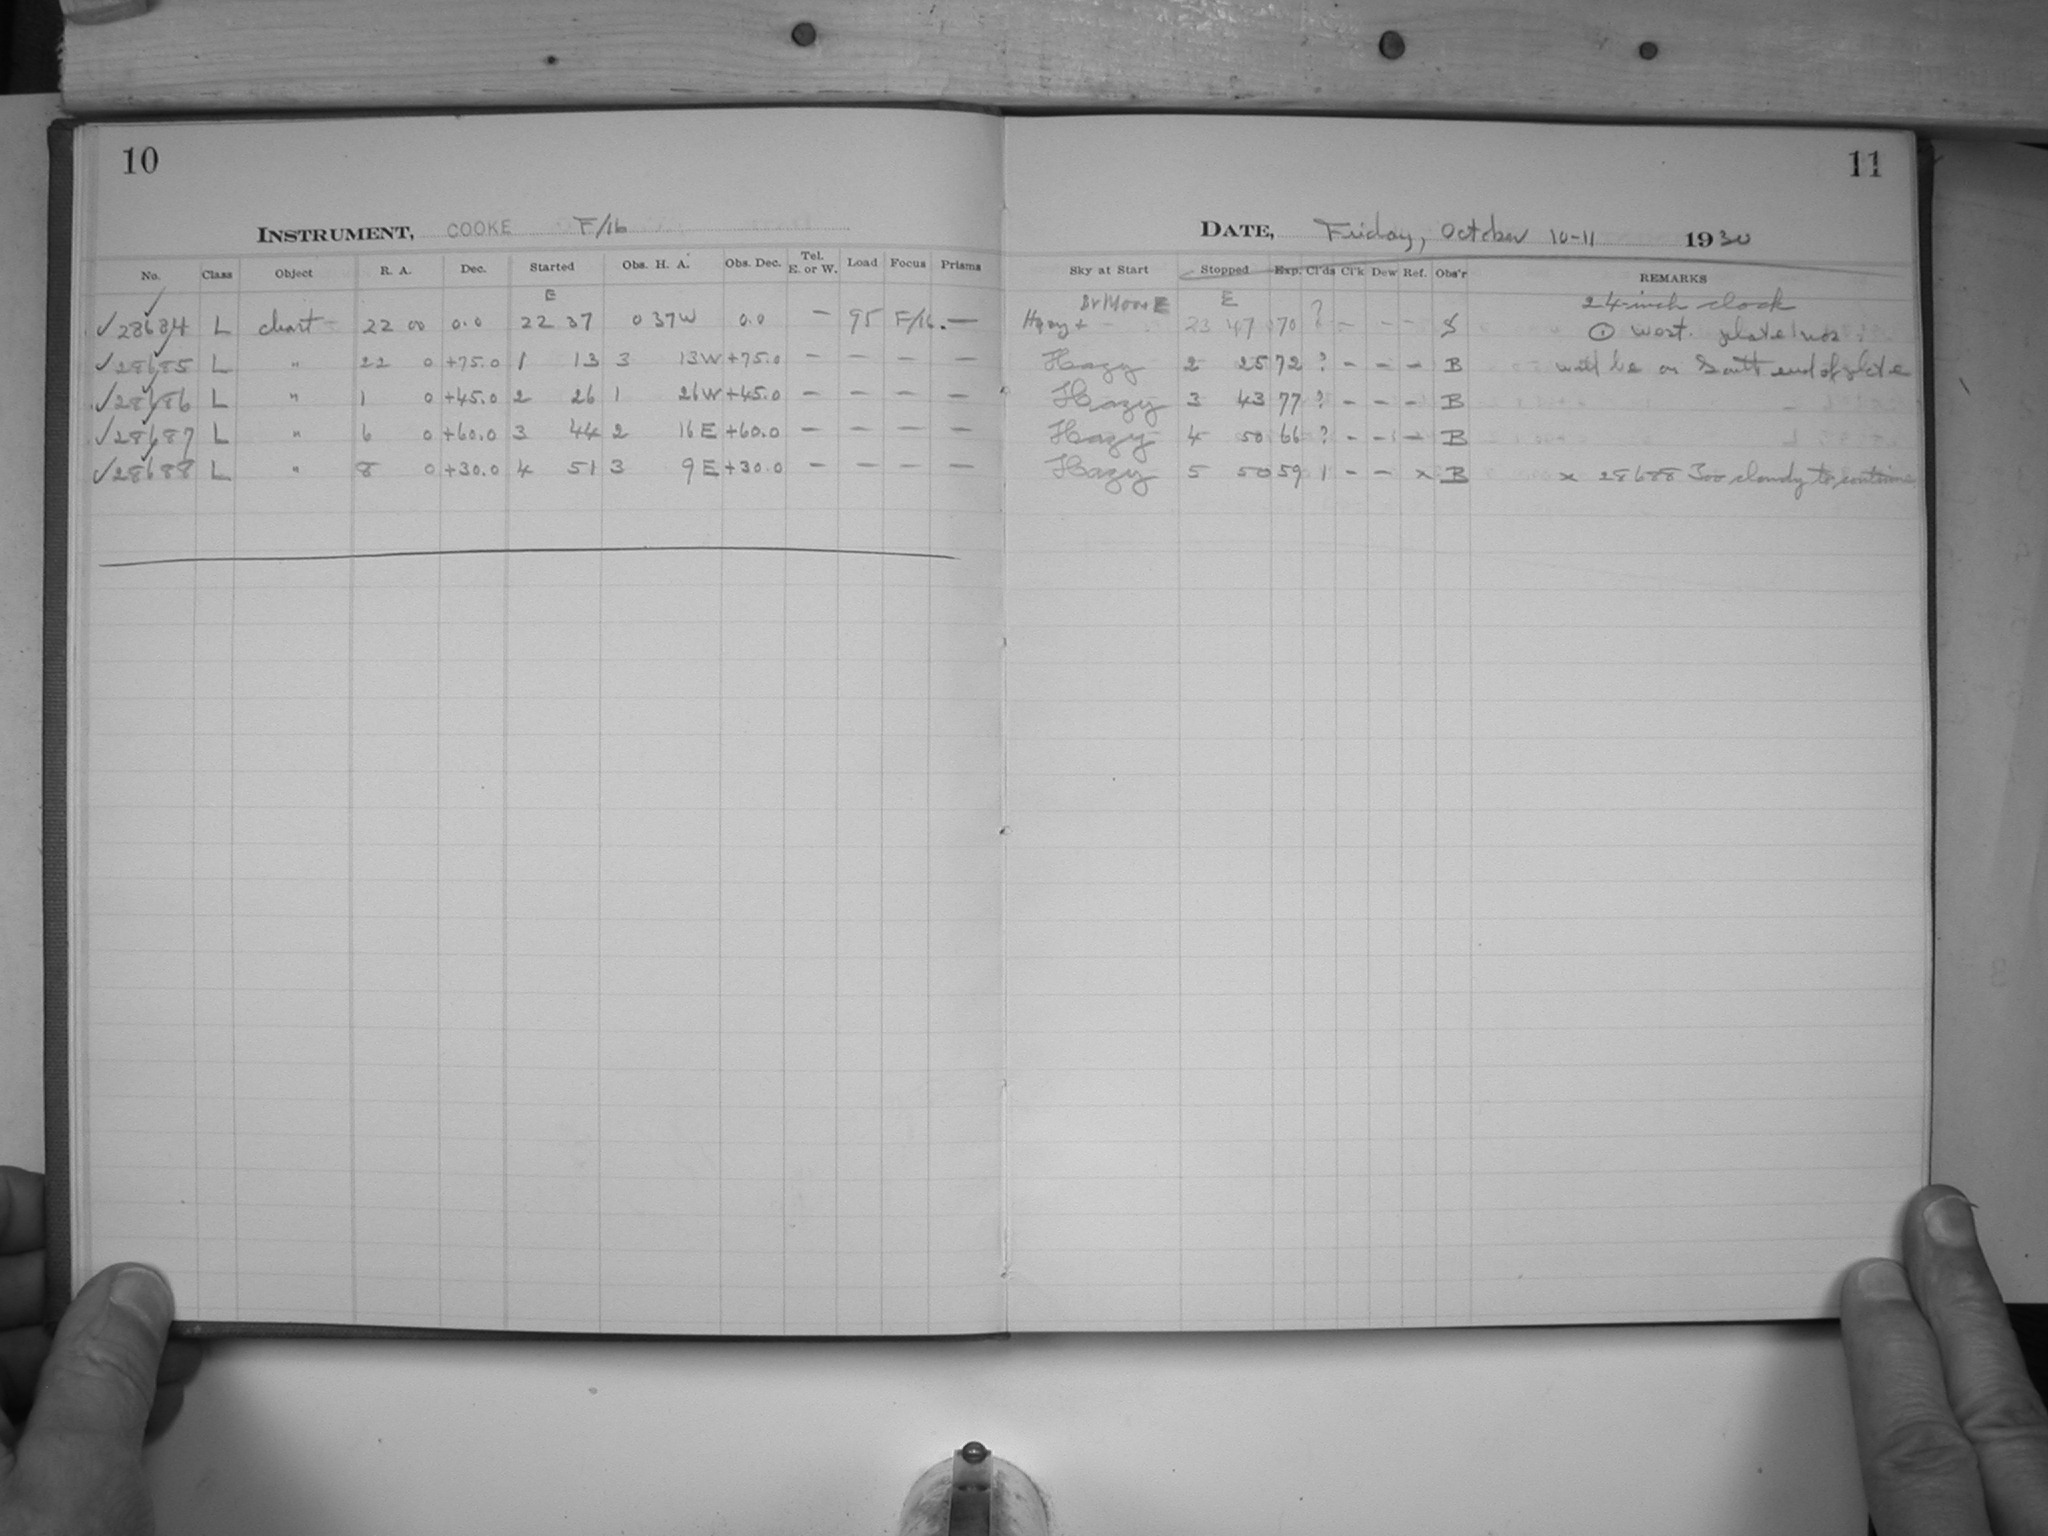 10
INSTRUMENT, COOKE F/16
No. Class Object R. A. Dec. Started Obs. H. A. Obs. Dec. Tel. E. or W. Load Focus Prisms
E
✓28684 L chart 22 00 0.0 22 37 0 37W 0.0 — 95 F/16. —
✓28685 L " 22 0 +75.0 1 13 3 13W +75.0 — — — —
✓28686 L " 1 0 +45.0 2 26 1 26W +45.0 — — — —
✓28687 L " 6 0 +60.0 3 44 2 16E +60.0 — — — —
✓28688 L " 8 0 +30.0 4 51 3 9E +30.0 — — — —
11
DATE, Friday, October 10-11 1930
Sky at Start Stopped Exp. Cl'ds Cl'k Dew Ref. Obs'r REMARKS
Br Moon E E 24-inch clock
Hazy + 23 47 70 ? - - - S ① West. plate
Hazy 2 25 72 ? - - - B will be on South end of plate
Hazy 3 43 77 ? - - - B
Hazy 4 50 66 ? - - - B
Hazy 5 50 59 1 - - x B x 28688 Too cloudy to continue